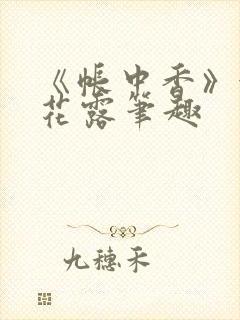 《帐中香》
花露笔趣
九穗禾